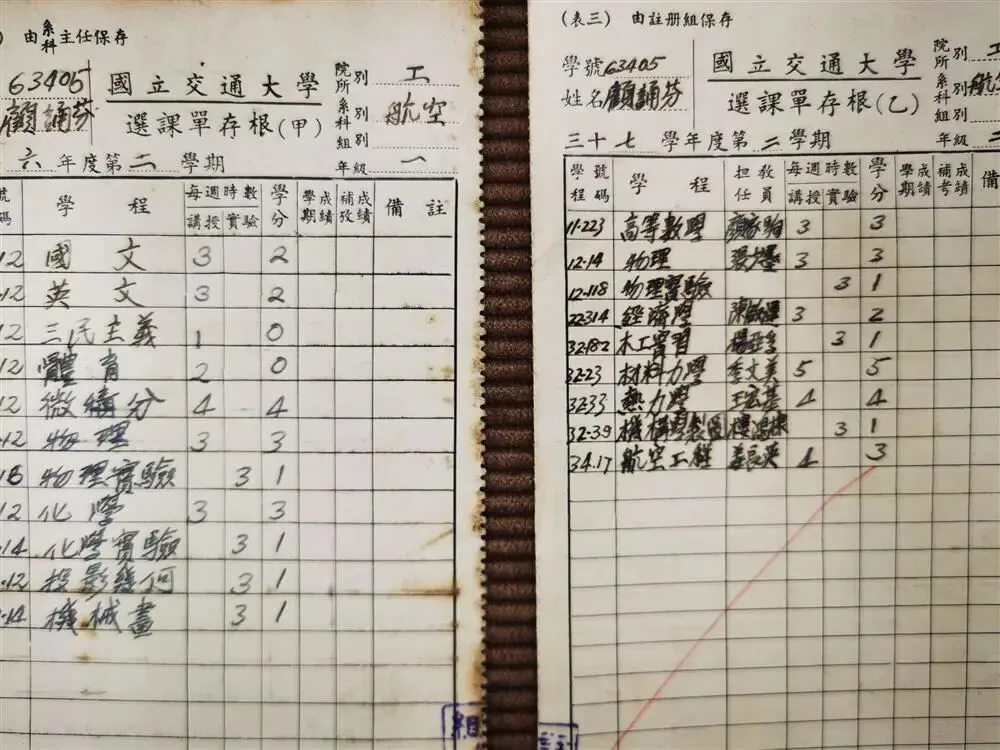 由系科主任保存
63405 國立交通大學 院所別 工
顧誦芬 選課單存根(甲) 系科組別 航空
六年度第二學期 年級 一
號碼 學程 每週時數 講授 實驗 學分 學期成績 補攷成績 備註
12 國文 3 2
12 英文 3 2
12 三民主義 1 0
12 體育 2 0
12 微積分 4 4
12 物理 3 3
物理實驗 3 1
12 化學 3 3
14 化學實驗 3 1
12 投影幾何 3 1
14 機械畫 3 1
組
(表三) 由註册組保存
學號63405 國立交通大學 院所別 工
姓名顧誦芬 選課單存根(乙) 系科組別 航空
三十七學年度第二學期 年級 二
學程號碼 學程 担任教員 每週時數 講授 實驗 學分 學期成績 補考成績 備
11-223 高等數學 顧家 3 3
12-14 物理 3 3
12-118 物理實驗 3 1
22314 經濟學 3 2
32182 木工實習 3 1
32-23 材料力學 季文美 5 5
32-33 熱力學 王宏基 4 4
32-39 機構學製圖 3 1
34.17 航空工程 姜長英 4 3